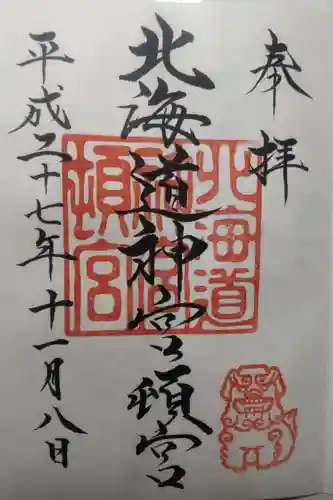 奉拝
北海道神宮頓宮
平成二十七年十一月八日
北海道
神宮
頓宮